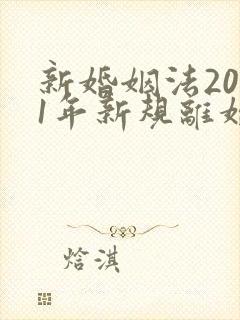 新婚姻法20
1年新規離婚
焓淇